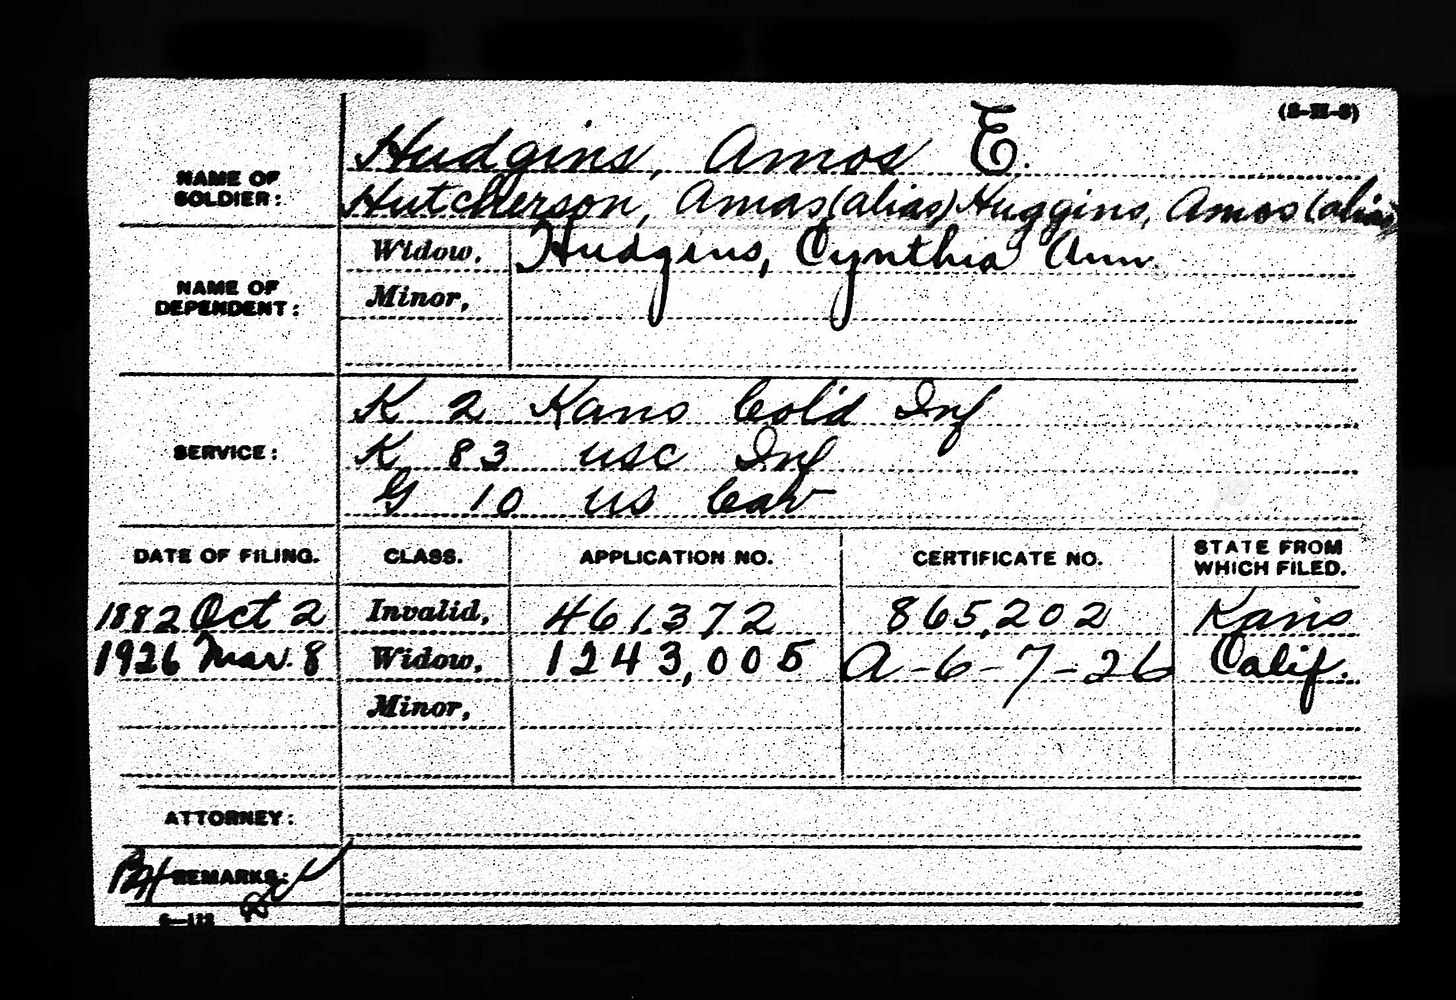 (3-II-3)
NAME OF SOLDIER:
Hudgins, Amos E.
Hutcherson, Amas (alias) Huggins, Amos (alias)
NAME OF DEPENDENT:
Widow, Hudgins, Cynthia Ann.
Minor,
SERVICE:
K 2 Kans Col'd Inf
K 83 USC Inf
G 10 US Cav
DATE OF FILING. CLASS. APPLICATION NO. CERTIFICATE NO. STATE FROM WHICH FILED.
1882 Oct 2 Invalid, 461,372 865,202 Kans
1926 Mar. 8 Widow, 1243,005 A-6-7-26 Calif.
Minor,
ATTORNEY:
REMARKS: